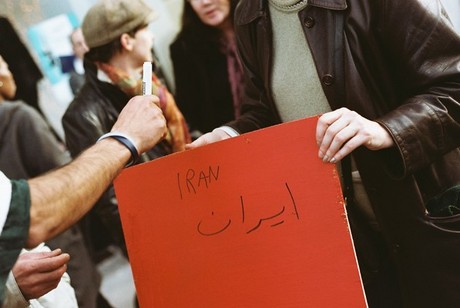 IRAN
ایران